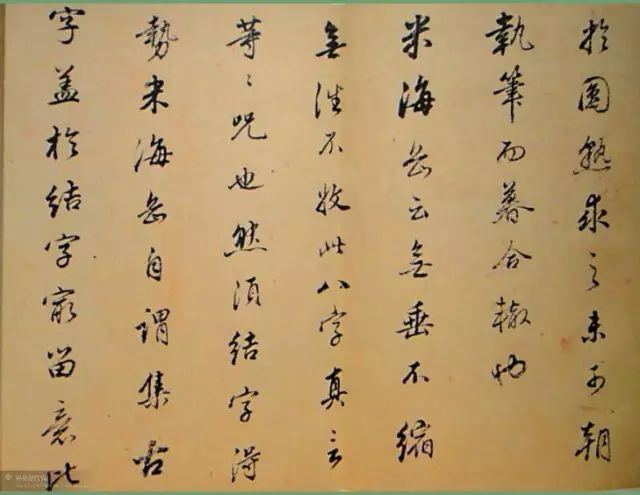 於圓熟求之未可朝
執筆而暮合轍也
米海岳云無垂不縮
無往不收此八字真言
等〻呪也然須結字得
勢米海岳自謂集古
字蓋於結字最留意比